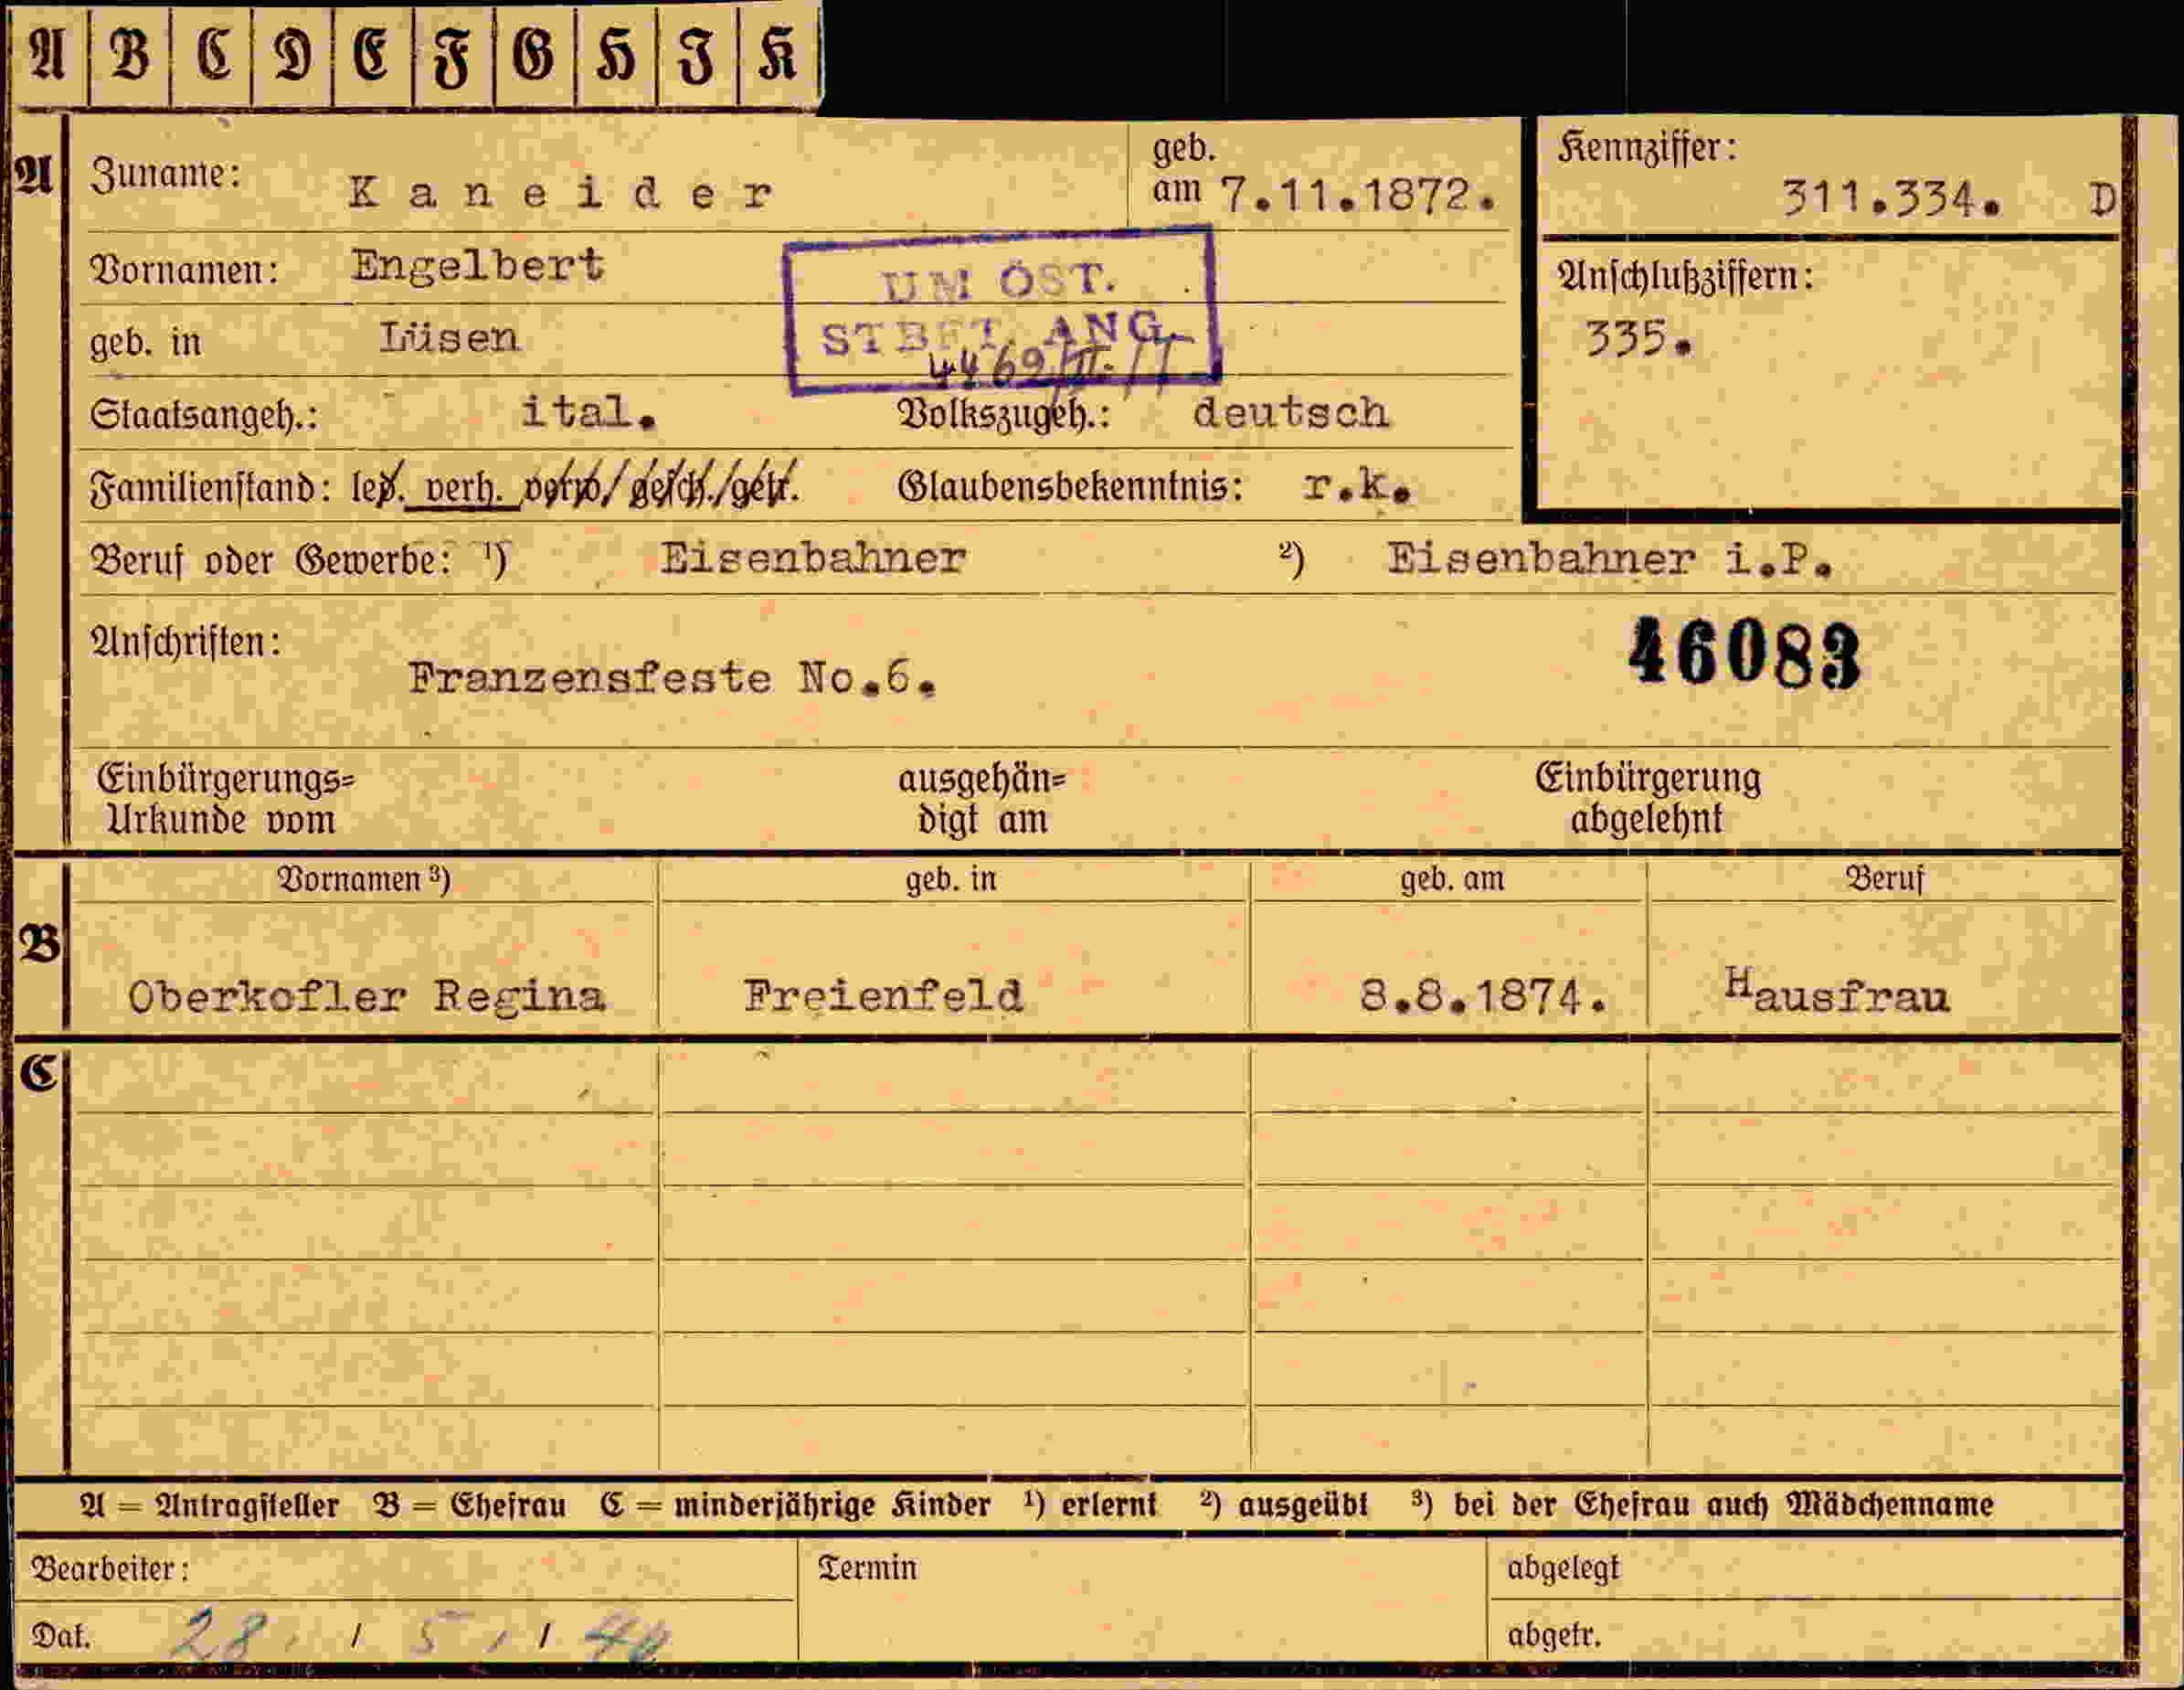 A B C D E F G H I K
A Zuname: Kaneider geb. am 7.11.1872. Kennziffer: 311.334. D
Vornamen: Engelbert
UM ÖST.
STBFT. ANG.
geb. in Lüsen
Anschlußziffern:
335.
Staatsangeh.: ital. Volkszugeh.: deutsch
Familienstand: led. verh. verw./gesch./getr. Glaubensbekenntnis: r.k.
Beruf oder Gewerbe: ¹) Eisenbahner ²) Eisenbahner i.P.
Anschriften: Franzensfeste No.6.
46083
Einbürgerungs= ausgehän= Einbürgerung
Urkunde vom digt am abgelehnt
Vornamen ³) geb. in geb. am Beruf
B Oberkofler Regina Freienfeld 8.8.1874. Hausfrau
C
A = Antragsteller B = Ehefrau C = minderjährige Kinder ¹) erlernt ²) ausgeübt ³) bei der Ehefrau auch Mädchenname
Bearbeiter: Termin abgelegt
Dat. 28. / 5. / 40 abgetr.